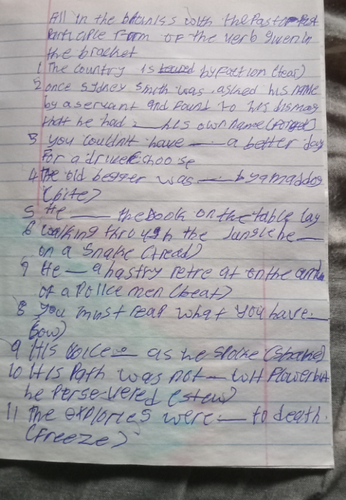 All in the blaniss with the Past
Participle form of the verb given in
the bracket
1 The country is by faction (tear)
2 once sydney smith was asked his name
by a servant and found to his dismay
that he had — his own name (forget)
3 you couldnt have — a better day
for a drive choose
4 The old begger was — by a mad dog
(bite)
5 He — the book on the table lay
6 walking through the Jungle he —
on a snake (tread)
7 He — a hastry retreat on the
of a Police men (beat)
8 you must reap what you have —
Sow)
9 His voice — as he spoke (shake)
10 His Path was not — with flower but
he persevered (strew)
11 The explories were — to death.
(freeze)